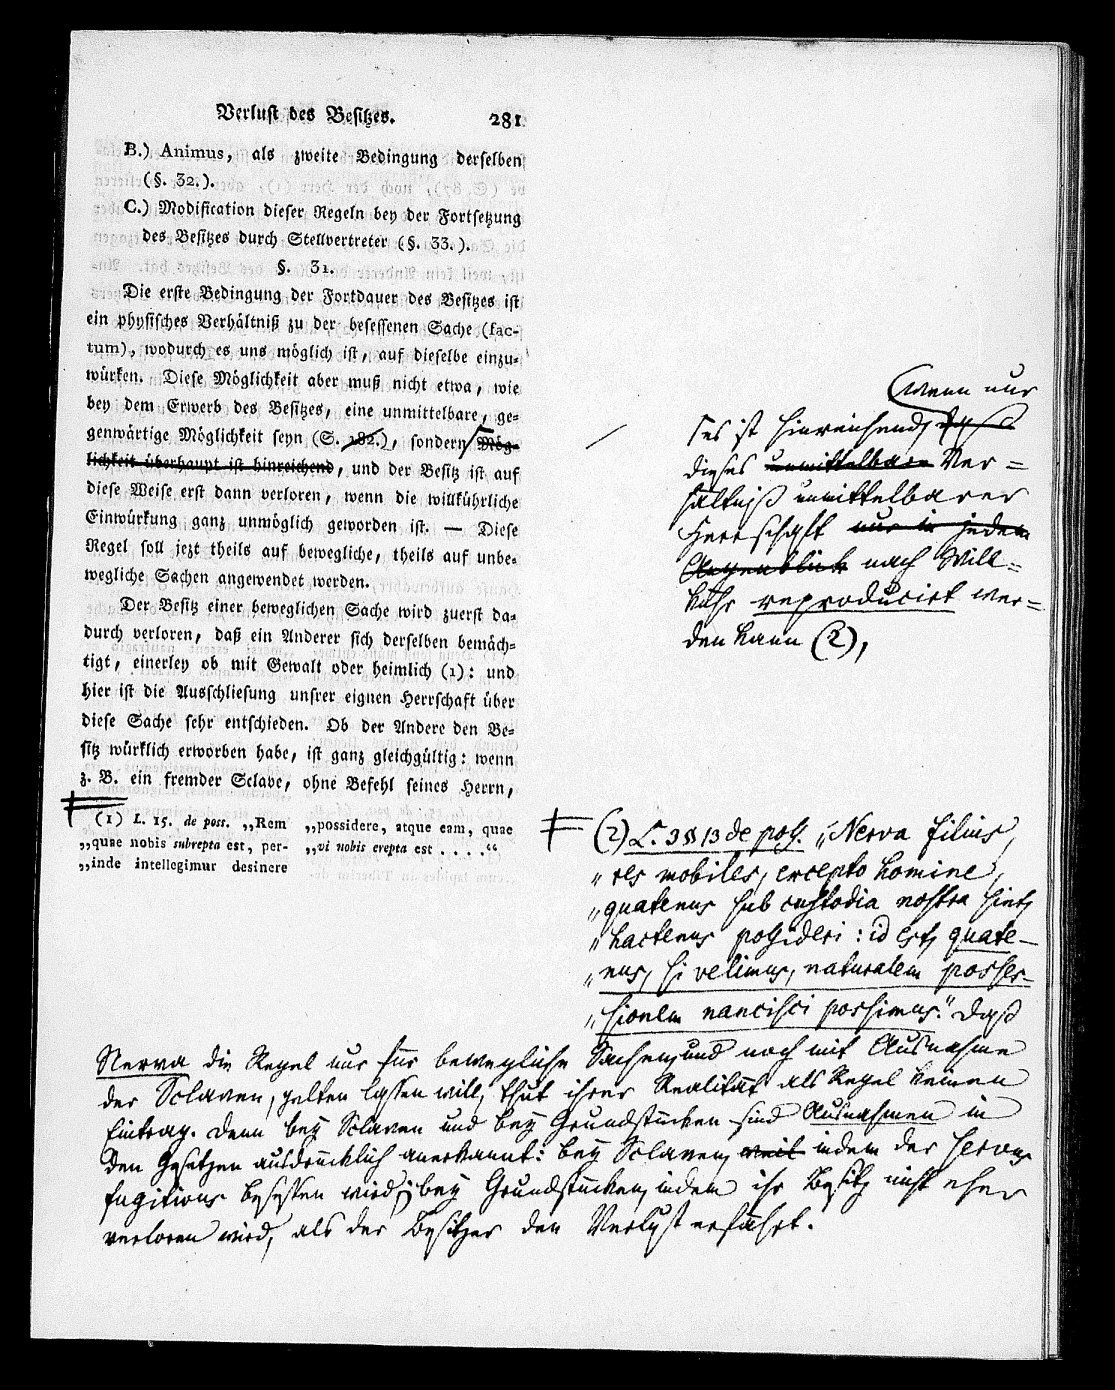 Verlust des Besitzes. 281
B.) Animus, als zweite Bedingung derselben
(§. 32.).
C.) Modification dieser Regeln bey der Fortsetzung
des Besitzes durch Stellvertreter (§. 33.).
§. 31.
Die erste Bedingung der Fortdauer des Besitzes ist
ein physisches Verhältniß zu der besessenen Sache (fac-
tum), wodurch es uns möglich ist, auf dieselbe einzu-
würken. Diese Möglichkeit aber muß nicht etwa, wie
bey dem Erwerb des Besitzes, eine unmittelbare, ge-
genwärtige Möglichkeit seyn (S. 182.), sondern Mög-
lichkeit überhaupt ist hinreichend, und der Besitz ist auf
diese Weise erst dann verloren, wenn die willkührliche
Einwürkung ganz unmöglich geworden ist. — Diese
Regel soll jezt theils auf bewegliche, theils auf unbe-
wegliche Sachen angewendet werden.
Der Besitz einer beweglichen Sache wird zuerst da-
durch verloren, daß ein Anderer sich derselben bemäch-
tigt, einerley ob mit Gewalt oder heimlich (1): und
hier ist die Ausschliesung unsrer eignen Herrschaft über
diese Sache sehr entschieden. Ob der Andere den Be-
sitz würklich erworben habe, ist ganz gleichgültig: wenn
z. B. ein fremder Sclave, ohne Befehl seines Herrn,
(1) L. 15. de poss. „Rem
„quae nobis subrepta est, per-
„inde intellegimur desinere
„possidere, atque eam, quae
„vi nobis erepta est . . . .“
wenn nur
es ist hinreichend, daß
dieses unmittelbare Ver=
hältniß unmittelbarer
Herrschaft nur in jedem
Augenblick nach Will=
kühr reproducirt wer=
den kann (2),
(2) L. 3 § 13 de poss. „Nerva filius,
„res mobiles, excepto homine,
„quatenus sub custodia nostra sint,
„hactenus possideri: id est, quate-
„nus, si velimus, naturalem posses-
„sionem nancisci possimus." Daß
Nerva die Regel nur für bewegliche Sachen, und noch mit Ausnahme
der Sclaven, gelten lassen will, thut ihrer Realität als Regel keinen
Eintrag. Denn bey Sclaven und bey Grundstücken sind Ausnahmen in
den Gesetzen ausdrücklich anerkannt: bey Sclaven, weil indem der servus
fugitivus besessen wird; bey Grundstücken, indem ihr Besitz nicht eher
verloren wird, als der Besitzer den Verlust erfährt.